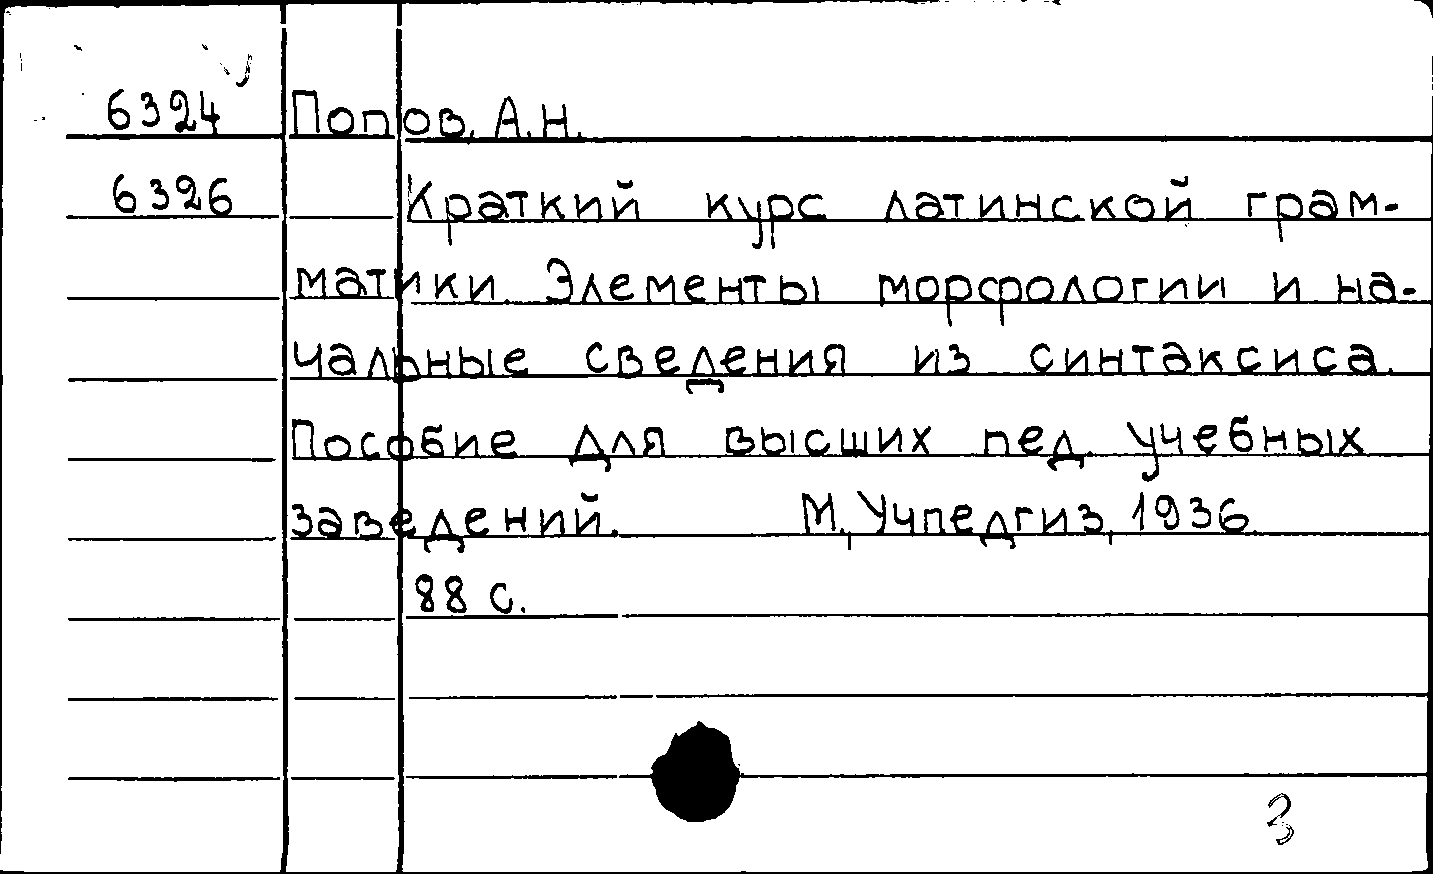 6324 Попов, А.Н.
6326 Краткий курс латинской грам-
матики. Элементы морфологии и на-
чальные сведения из синтаксиса.
Пособие для высших пед. учебных
заведений. М., Учпедгиз, 1936.
88 с.
3